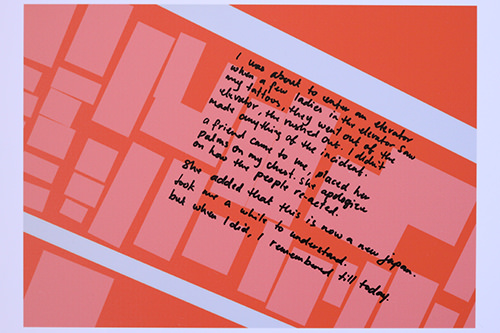 I was about to enter an elevator
when a few ladies in the elevator saw
my tattoos. They went out of the
elevator, the rushed out. I didn't
made anything of the incident.
a friend came to me, placed her
palms on my chest. She apologize
on how the people reacted.
She added that this is now a new japan.
took me a while to understand.
but when I did, I remembered till today.